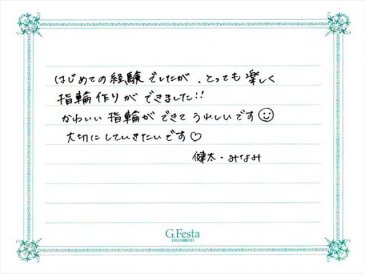 はじめての経験でしたが、とっても楽しく
指輪作りができました!!
かわいい指輪ができてうれしいです☺
大切にしていきたいです♡
健太・みなみ
G.Festa